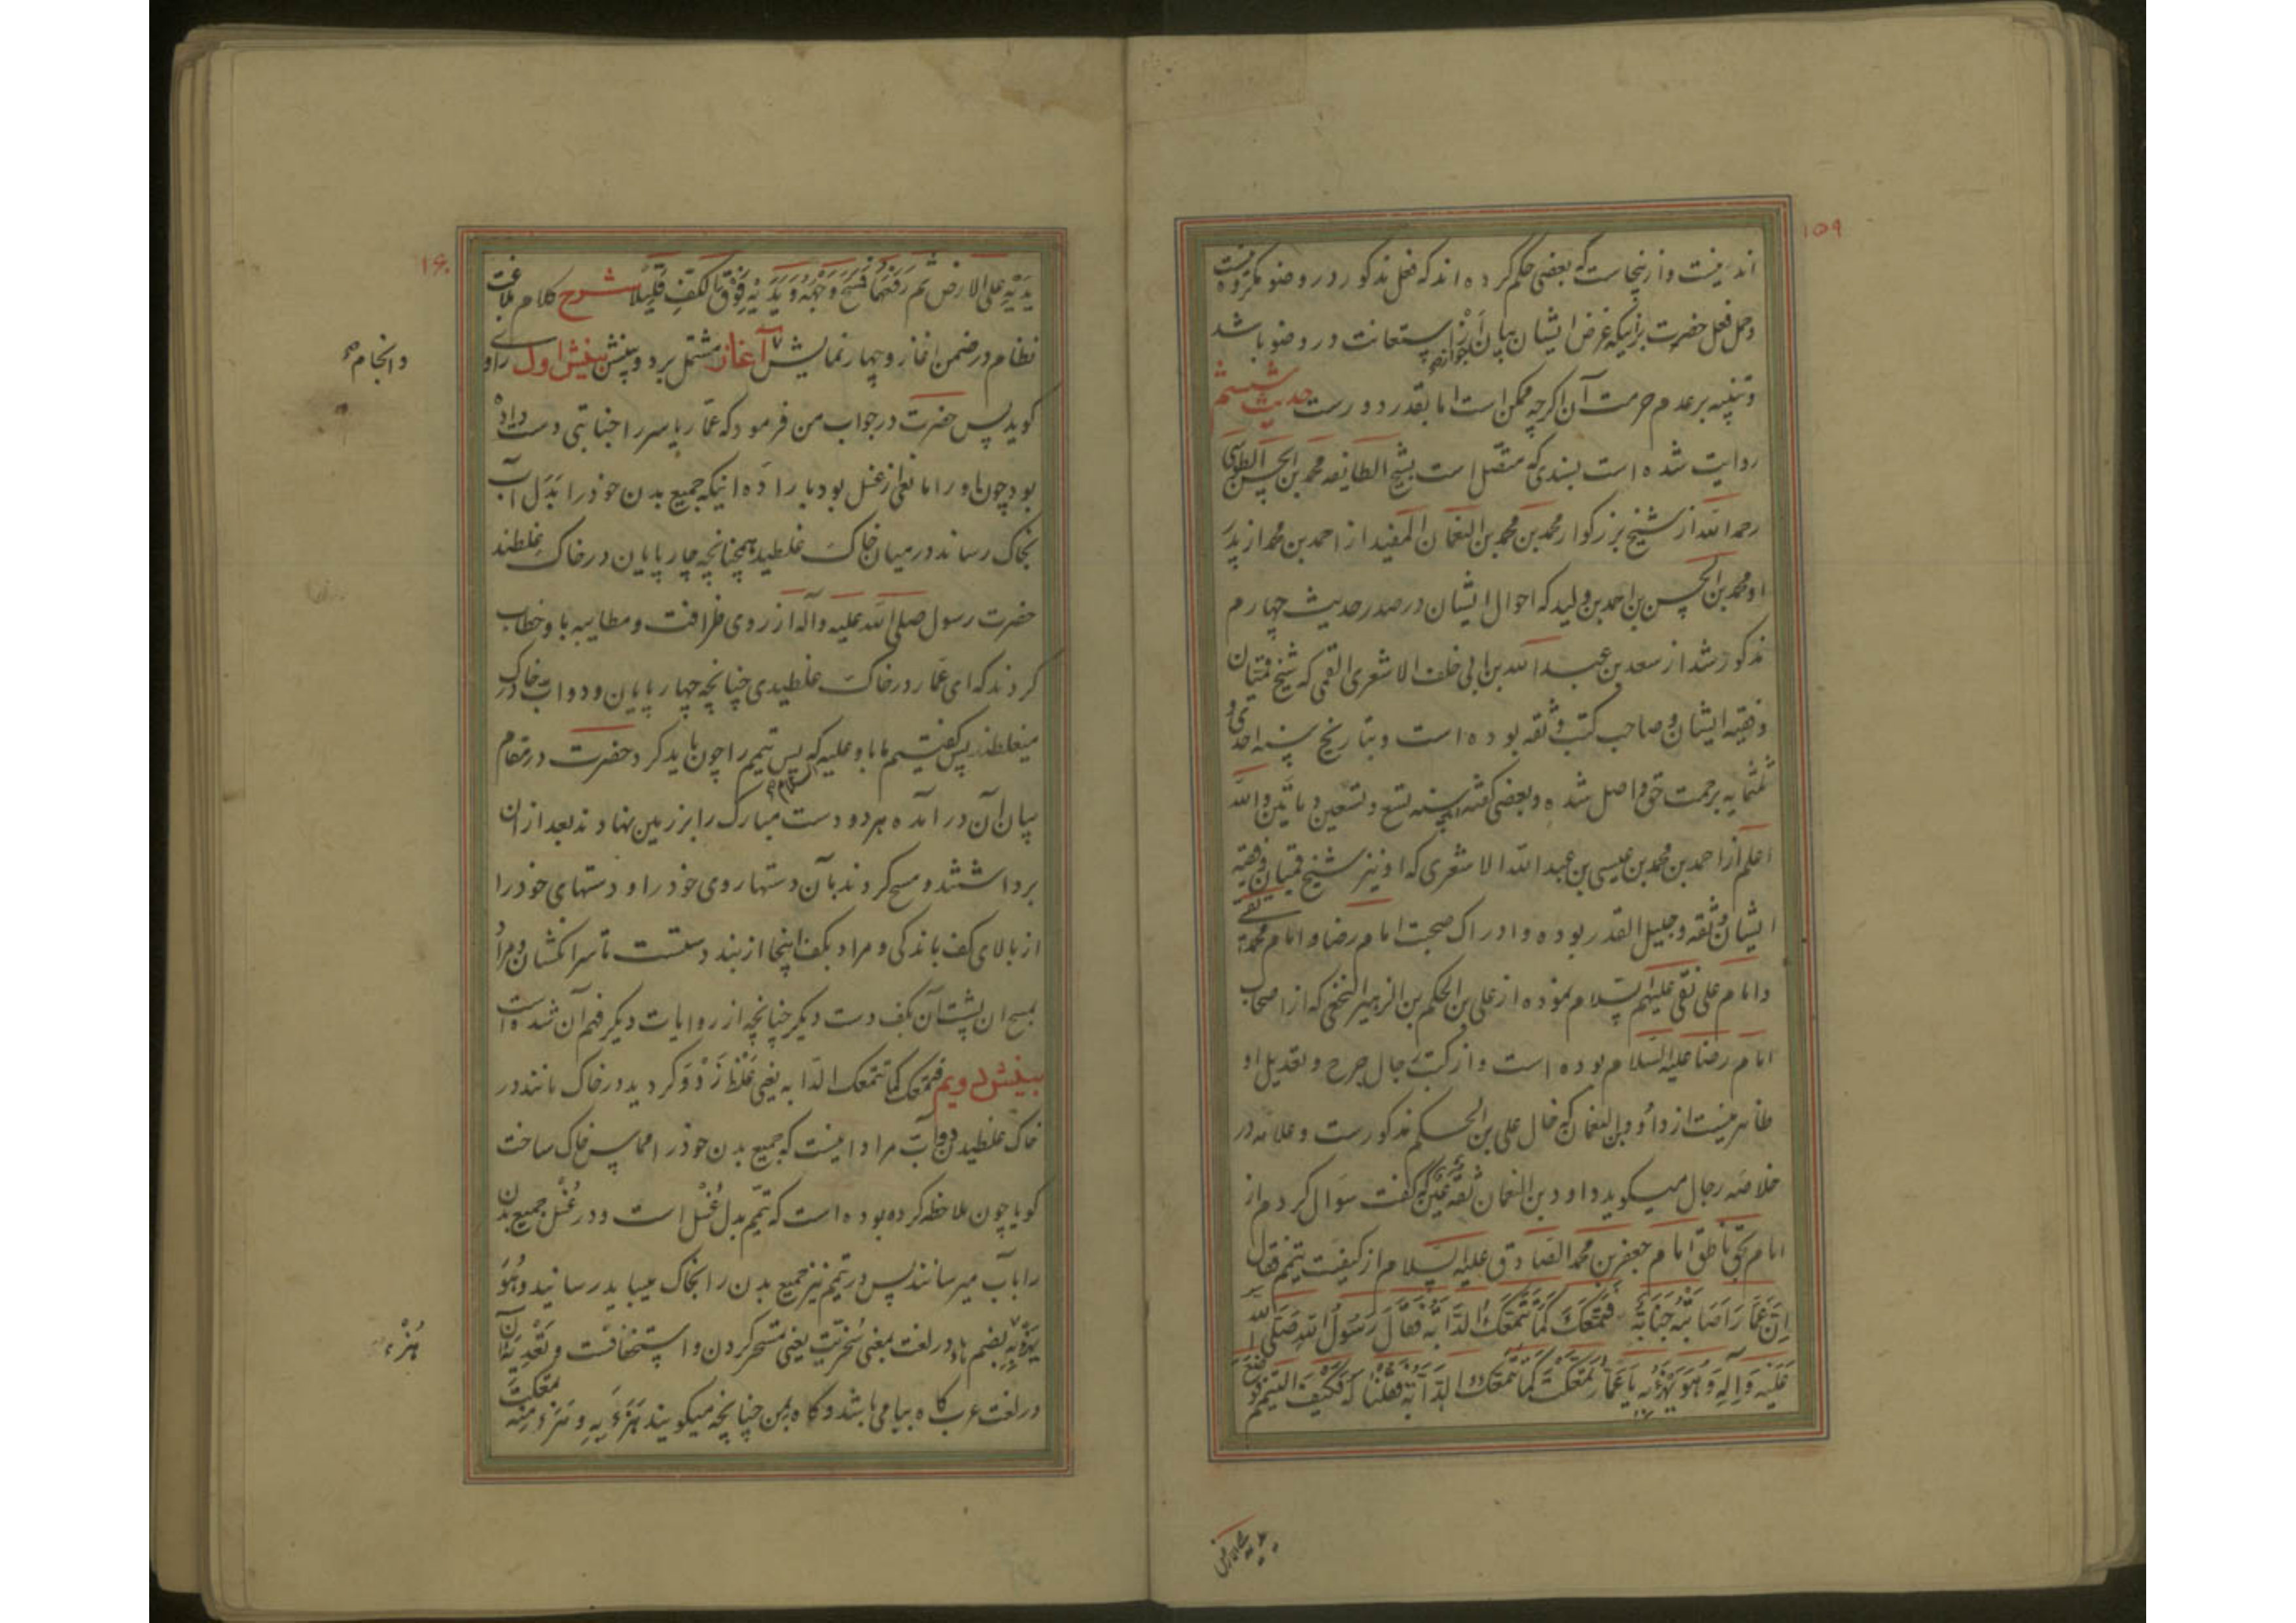 ۱۵۹
اند نیست و ازینجاست که بعضی حکم کرده اند که فعل مذکور در وضو مکروه نیست
و حمل فعل حضرت برانیکه غرض ایشان بیان جواز استعانت در وضو باشد
و تنبیه بر عدم حرمت آن اگرچه ممکن است اما بقدر دورست حدیث ششم
روایت شده است بسندی که متصل است بشیخ الطایفه محمد بن الحسن الطوسی
رحمه الله از شیخ بزرگوار محمد بن محمد بن النعمان المفید از احمد بن محمد از پدر
او محمد بن الحسن بن احمد بن ولید که احوال ایشان در صدر حدیث چهارم
مذکور شد از سعد بن عبد الله بن ابی خلف الاشعری القمی که شیخ قمیان
و فقیه ایشان و صاحب کتب و ثقه بوده است و بتاریخ سنه احدی و
ثلثمایه برحمت حق واصل شده و بعضی گفته اند سنه تسع و تسعین و مأتین والله
اعلم از احمد بن محمد بن عیسی بن عبد الله الاشعری که او نیز شیخ قمیان و فقیه
ایشان و ثقه و جلیل القدر بوده و ادراک صحبت امام رضا و امام محمد تقی
و امام علی نقی علیهم السلام نموده از علی بن الحکم بن الزبیر النخعی که از اصحاب
امام رضا علیه السلام بوده است و از کتب رجال جرح و تعدیل او
ظاهر نیست از داؤد بن النعمان که خال علی بن الحکم مذکورست و علامه در
خلاصه رجال میگوید داود بن النعمان ثقة عین که گفت سوال کردم از
امام بحق ناطق امام جعفر بن محمد الصادق علیه السلام از کیفیت تیمم فقال
اِنَّ عَمَّارَاً اَصَابَتْهُ جَنَابَةٌ فَتَمَعَّكَ كَمَا تَتَمَعَّكُ الدَّابَّةُ فَقَالَ رَسُولُ اللهِ صَلَّى اللهُ
عَلَيْهِ وَآلِهِ وَهُوَ يَهْزَءُ بِهِ يَا عَمَّارُ تَمَعَّكْتَ كَمَا تَتَمَعَّكُ الدَّابَّةُ فَقُلْنَا لَهُ فَكَيْفَ التَّيَمُّمُ فَوَضَعَ
یدیه علی الارض
۱۶۰
يَدَيْهِ عَلَى الْاَرْضِ ثُمَّ رَفَعَهُمَا فَمَسَحَ وَجْهَهُ وَيَدَيْهِ فَوْقَ الْكَفِّ قَلِيلًا شرح کلام بلاغت
نظام در ضمن اغاز و چهار نمایش آغاز مشتمل بر دو بینش بینش اول راوی
گوید پس حضرت در جواب من فرمود که عمار یاسر را جنابتی دست داده
بود چون او را مانعی از غسل بود با راده اینکه جمیع بدن خود را بدل آب
بخاک رساند در میان خاک غلطید همچنانچه چارپایان در خاک غلطند
حضرت رسول صلی الله علیه و آله از روی ظرافت و مطایبه با و خطاب
کردند که ای عمار در خاک غلطیدی چنانچه چهارپایان و دواب در خاک
میغلطند پس گفتیم ما با و علیه السلام که پس تیمم را چون باید کرد حضرت در مقام
بیان آن در آمده هر دو دست مبارک را بر زمین نهادند بعد از ان
برداشتند و مسح کردند بآن دستها روی خود را و دستهای خود را
از بالای کف باندکی و مراد بکف اینجا از بند دستست تا سر انگشتان و مراد
بمسح ان پشت آن بکف دست دیگر چنانچه از روایات دیگر فهم آن شده است
بینش دویم فتمعک کما تتمعک الدابه یعنی غلط زد و گردید در خاک مانند در
خاک غلطیدن دواب مراد اینست که جمیع بدن خود را مماس خاک ساخت
گویا چون ملاحظه کرده بوده است که تیمم بدل غسل است و در غسل جمیع بدن
را بآب میرسانند پس در تیمم نیز جمیع بدن را بخاک میباید رسانید وَهُوَ
يَهْزَءُ بِهِ بضم هاء در لغت بمعنی سخریت یعنی تمسخر کردن و استخفافست و تعدیه آن
در لغت عرب گاه ببا می باشد و گاه بمن چنانچه میگویند هَزَءَ بِهِ و هَزَءَ مِنْهُ تمعکت
و انجام صح
هُزْء